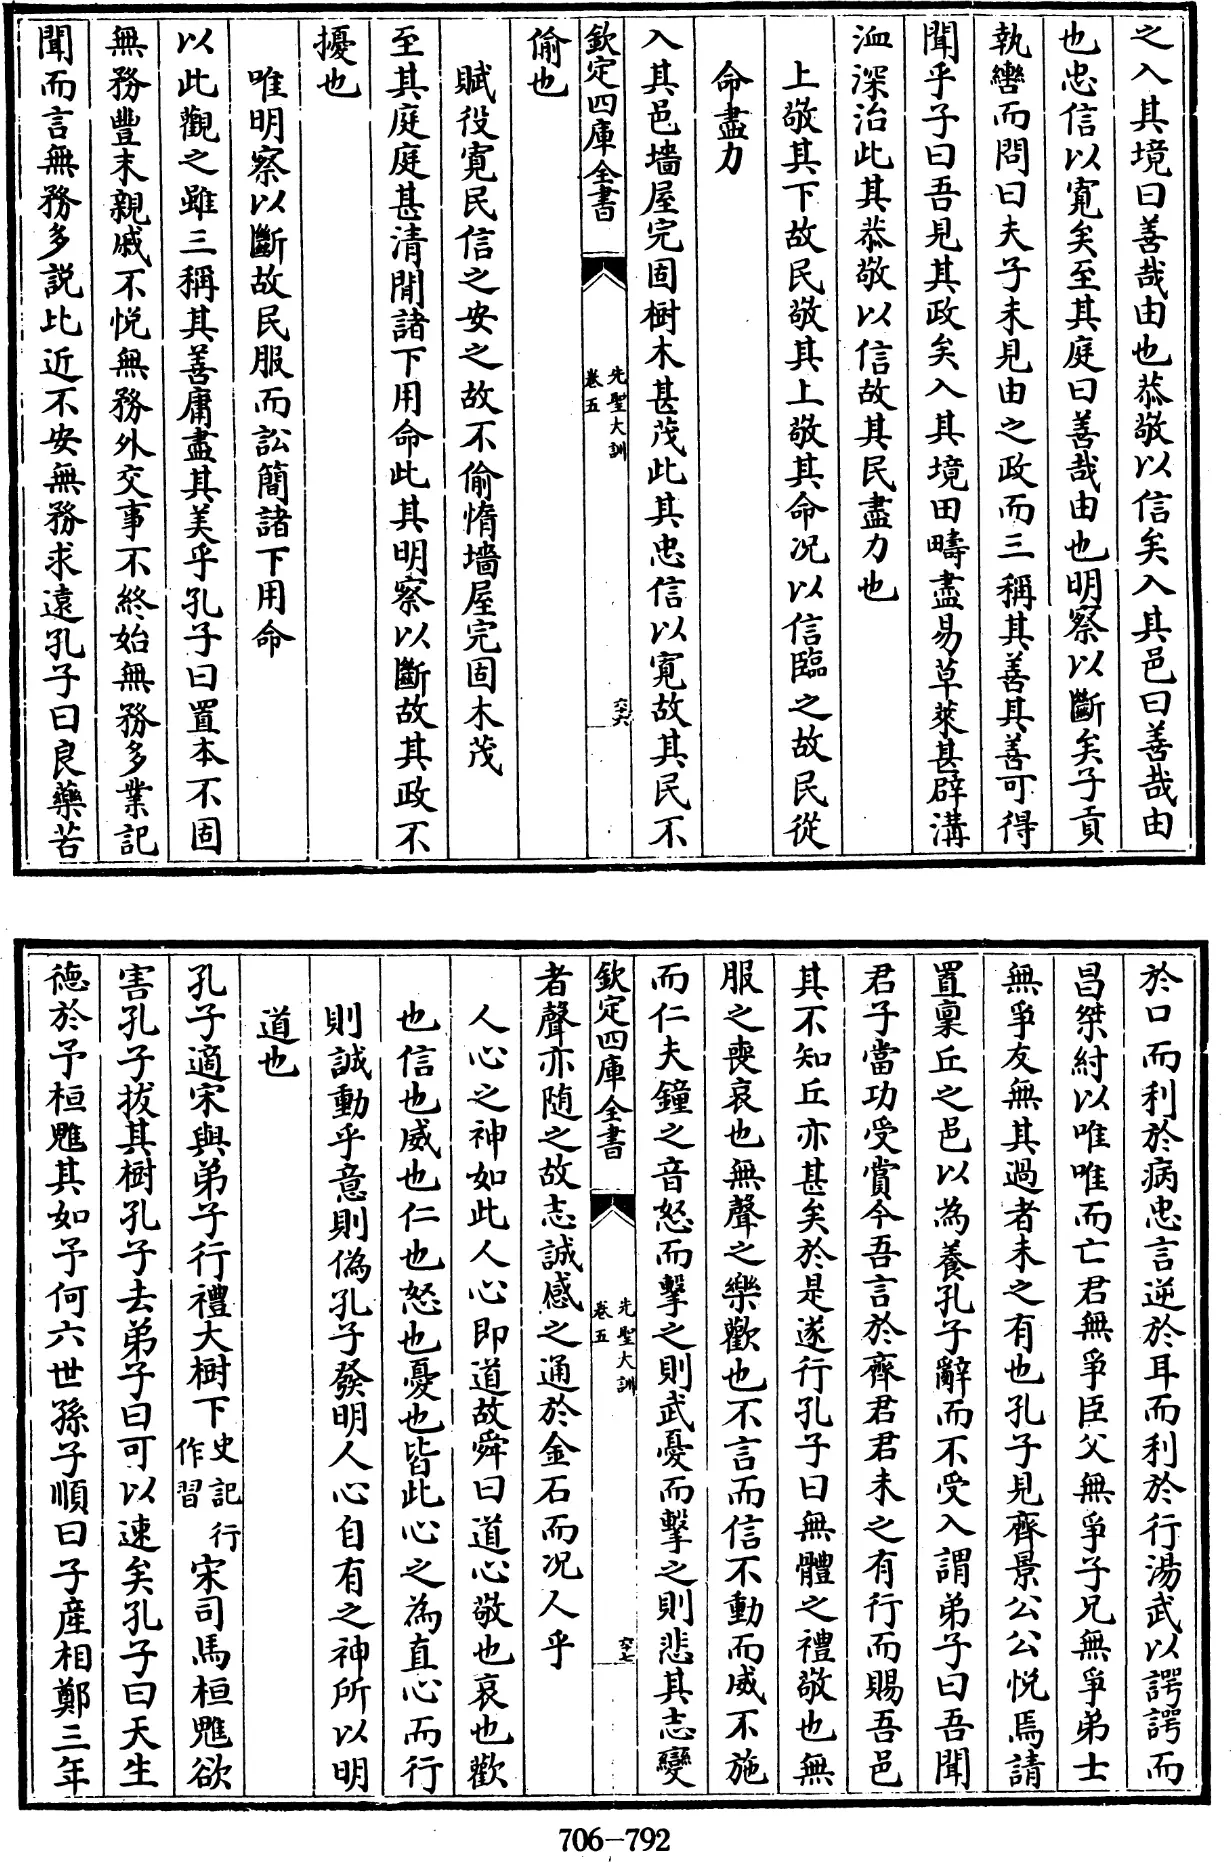 之入其境曰善哉由也恭敬以信矣入其邑曰善哉由
也忠信以寛矣至其庭曰善哉由也明察以斷矣子貢
執轡而問曰夫子未見由之政而三稱其善其善可得
聞乎子曰吾見其政矣入其境田疇盡易草萊甚辟溝
洫深治此其恭敬以信故其民盡力也
上敬其下故民敬其上敬其命况以信臨之故民從
命盡力
入其邑墻屋完固樹木甚茂此其忠信以寛故其民不
欽定四庫全書
先聖大訓
卷五
六十六
偷也
賦役寛民信之安之故不偷惰墻屋完固木茂
至其庭庭甚清閒諸下用命此其明察以斷故其政不
擾也
唯明察以斷故民服而訟簡諸下用命
以此觀之雖三稱其善庸盡其美乎孔子曰置本不固
無務豐末親戚不悅無務外交事不終始無務多業記
聞而言無務多説比近不安無務求遠孔子曰良藥苦
於口而利於病忠言逆於耳而利於行湯武以諤諤而
昌桀紂以唯唯而亡君無爭臣父無爭子兄無爭弟士
無爭友無其過者未之有也孔子見齊景公公悅焉請
置稟丘之邑以為養孔子辭而不受入謂弟子曰吾聞
君子當功受賞今吾言於齊君君未之有行而賜吾邑
其不知丘亦甚矣於是遂行孔子曰無體之禮敬也無
服之喪哀也無聲之樂歡也不言而信不動而威不施
而仁夫鐘之音怒而擊之則武憂而擊之則悲其志變
欽定四庫全書
先聖大訓
卷五
六十七
者聲亦随之故志誠感之通於金石而况人乎
人心之神如此人心即道故舜曰道心敬也哀也歡
也信也威也仁也怒也憂也皆此心之為直心而行
則誠動乎意則偽孔子發明人心自有之神所以明
道也
孔子適宋與弟子行禮大樹下史記行作習宋司馬桓魋欲
害孔子拔其樹孔子去弟子曰可以速矣孔子曰天生
德於予桓魋其如予何六世孫子順曰子産相鄭三年
706-792